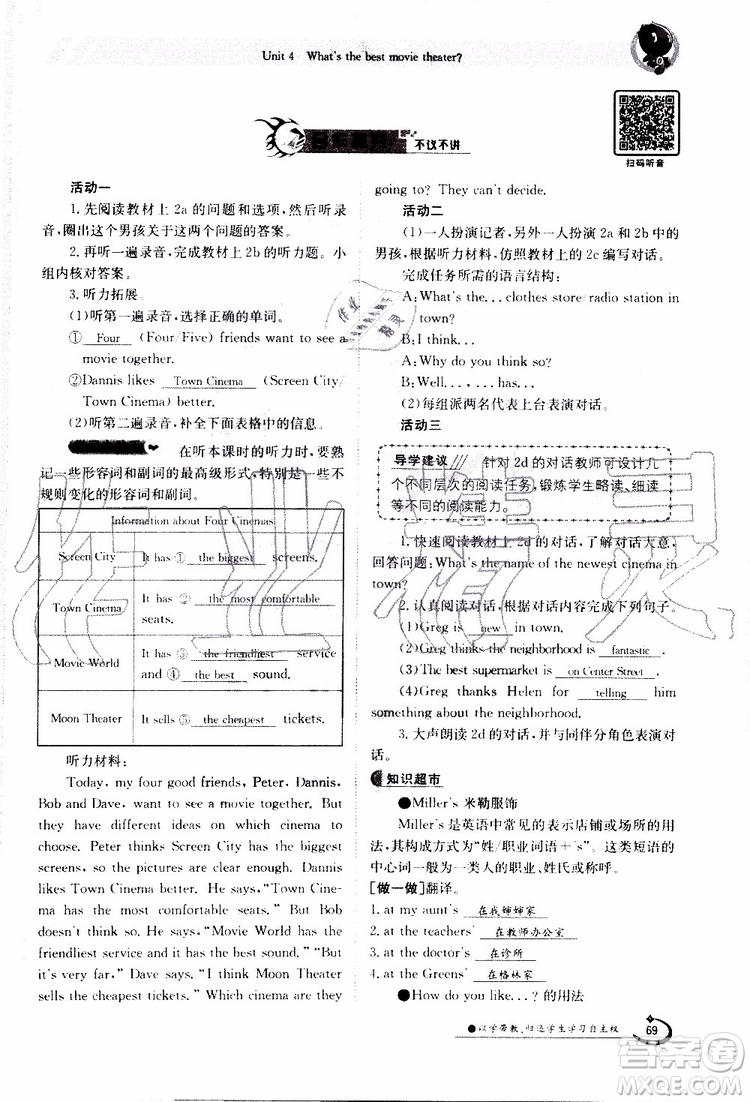 Unit 4 What's the best movie theater?
不议不讲
扫码听音
活动一
1. 先阅读教材上 2a 的问题和选项,然后听录
音,圈出这个男孩关于这两个问题的答案。
2. 再听一遍录音,完成教材上 2b 的听力题。小
组内核对答案。
3. 听力拓展。
(1)听第一遍录音,选择正确的单词。
① Four (Four/Five) friends want to see a
movie together.
②Dannis likes Town Cinema (Screen City/
Town Cinema) better.
(2)听第二遍录音,补全下面表格中的信息。
在听本课时的听力时,要熟
记一些形容词和副词的最高级形式,特别是一些不
规则变化的形容词和副词。
Information about Four Cinemas
Screen City It has ① the biggest screens.
Town Cinema It has ② the most comfortable
seats.
Movie World It has ③ the friendliest service
and ④ the best sound.
Moon Theater It sells ⑤ the cheapest tickets.
听力材料:
Today, my four good friends, Peter, Dannis,
Bob and Dave, want to see a movie together. But
they have different ideas on which cinema to
choose. Peter thinks Screen City has the biggest
screens, so the pictures are clear enough. Dannis
likes Town Cinema better. He says,"Town Cine-
ma has the most comfortable seats." But Bob
doesn't think so. He says, "Movie World has the
friendliest service and the best sound." "But
it's very far," Dave says. "I think Moon Theater
sells the cheapest tickets." Which cinema are they
going to? They can't decide.
活动二
(1)一人扮演记者,另外一人扮演 2a 和 2b 中的
男孩,根据听力材料,仿照教材上的 2c 编写对话。
完成任务所需的语言结构:
A:What's the. . . clothes store/radio station in
town?
B:I think. . .
A:Why do you think so?
B:Well. . . , . . . has. . .
(2)每组派两名代表上台表演对话。
活动三
导学建议 针对 2d 的对话教师可设计几
个不同层次的阅读任务,锻炼学生略读、细读
等不同的阅读能力。
1. 快速阅读教材上 2d 的对话,了解对话大意,
回答问题:What's the name of the newest cinema in
town?
2. 认真阅读对话,根据对话内容完成下列句子。
(1)Greg is new in town.
(2)Greg thinks the neighborhood is fantastic .
(3)The best supermarket is on Center Street .
(4)Greg thanks Helen for telling him
something about the neighborhood.
3. 大声朗读 2d 的对话,并与同伴分角色表演对
话。
知识超市
●Miller's 米勒服饰
Miller's 是英语中常见的表示店铺或场所的用
法,其构成方式为"姓/职业词语+'s"。这类短语的
中心词一般为一类人的职业、姓氏或称呼。
[做一做]翻译。
1. at my aunt's 在我婶婶家
2. at the teachers' 在教师办公室
3. at the doctor's 在诊所
4. at the Greens' 在格林家
●How do you like. . . ? 的用法
●以学带教,归还学生学习自主权
69
作业精灵
答案圈
MXQE.COM